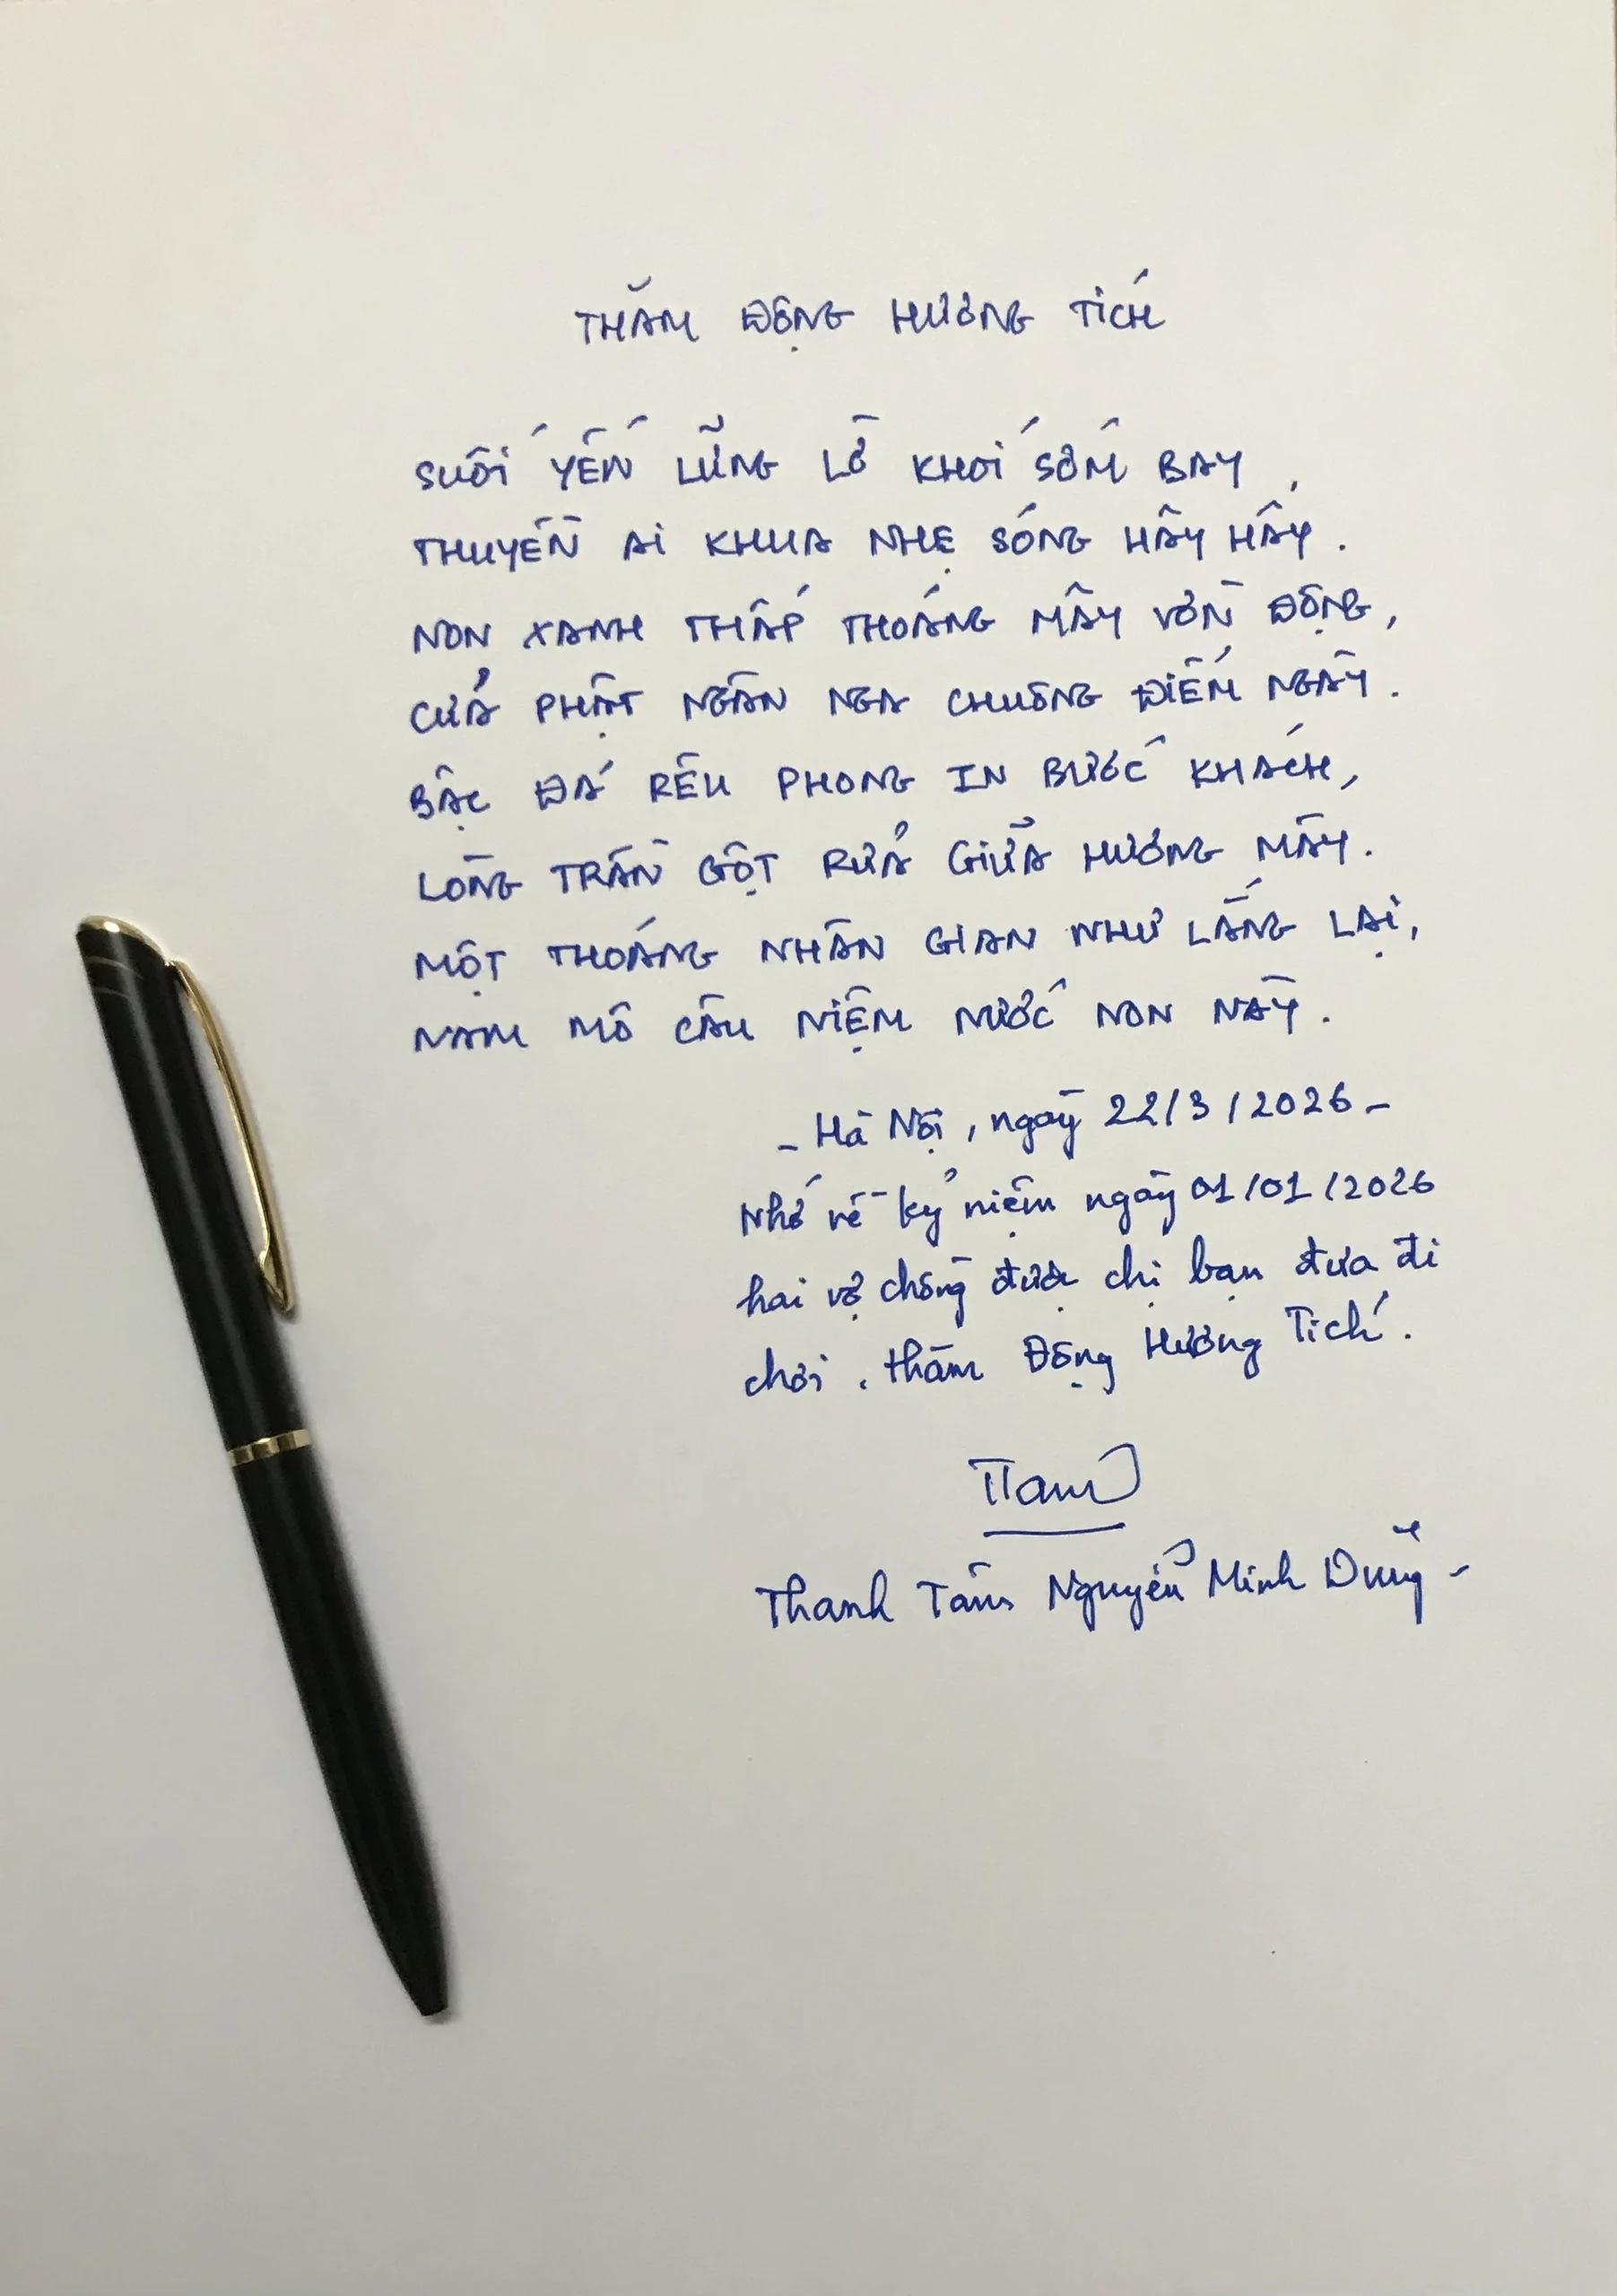 THĂM ĐỘNG HƯƠNG TÍCH
SUỐI YẾN LỮNG LỜ KHÓI SỚM BAY,
THUYỀN AI KHUA NHẸ SÓNG HÂY HÂY.
NON XANH THẤP THOÁNG MÂY VỜN ĐỘNG,
CỬA PHẬT NGÂN NGA CHUÔNG ĐIỂM NGÀY.
BẬC ĐÁ RÊU PHONG IN BƯỚC KHÁCH,
LÒNG TRẦN GỘT RỬA GIỮA HƯƠNG MÂY.
MỘT THOÁNG NHÂN GIAN NHƯ LẮNG LẠI,
NAM MÔ CÂU NIỆM NƯỚC NON NÀY.
- Hà Nội, ngày 22/3/2026 -
Nhớ về kỷ niệm ngày 01/01/2026
hai vợ chồng được chị bạn đưa đi
chơi, thăm Động Hương Tích.
TTam
Thanh Tâm Nguyễn Minh Dũng -